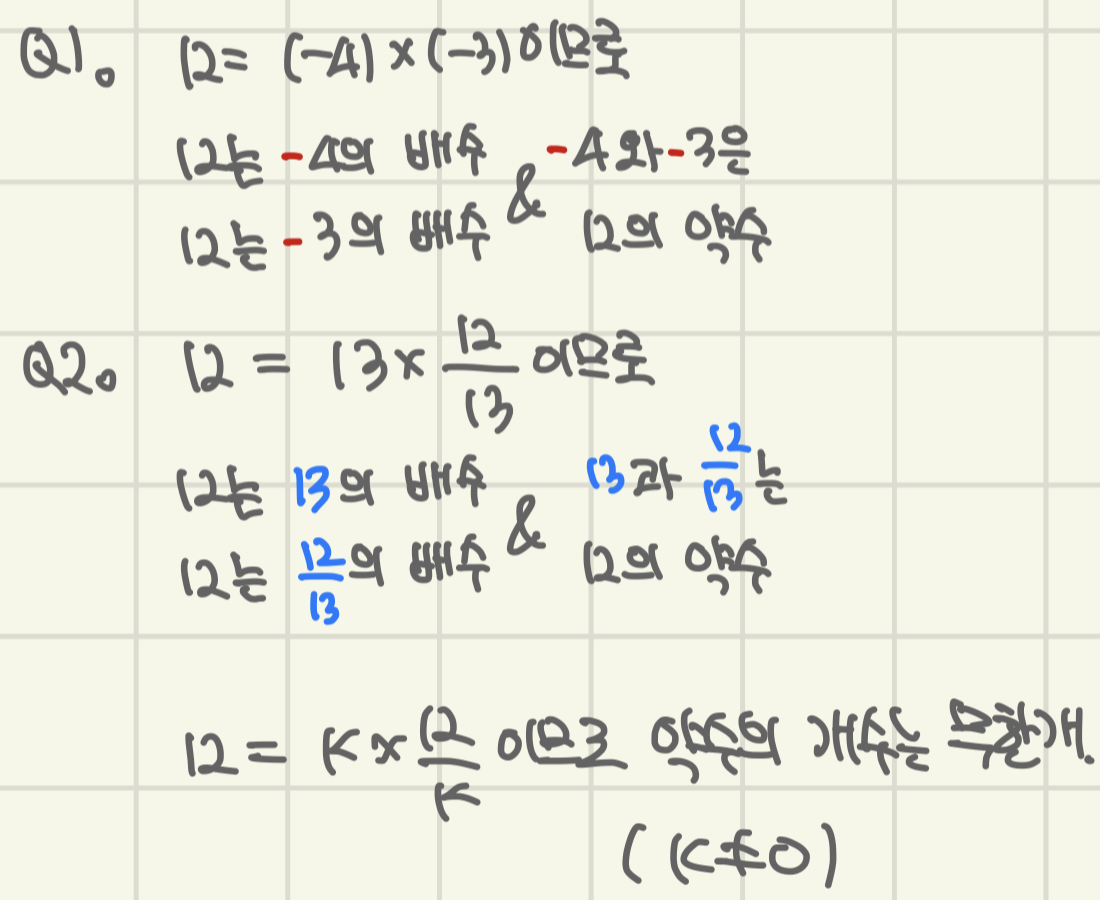 Q1. 12 = (-4) × (-3) 이므로
12는 -4의 배수 & -4와 -3은
12는 -3의 배수 12의 약수
Q2. 12 = 13 × 12/13 이므로
12는 13의 배수 & 13과 12/13는
12는 12/13의 배수 12의 약수
12 = k × 12/k 이므로 약수의 개수는 무한개.
(k≠0)